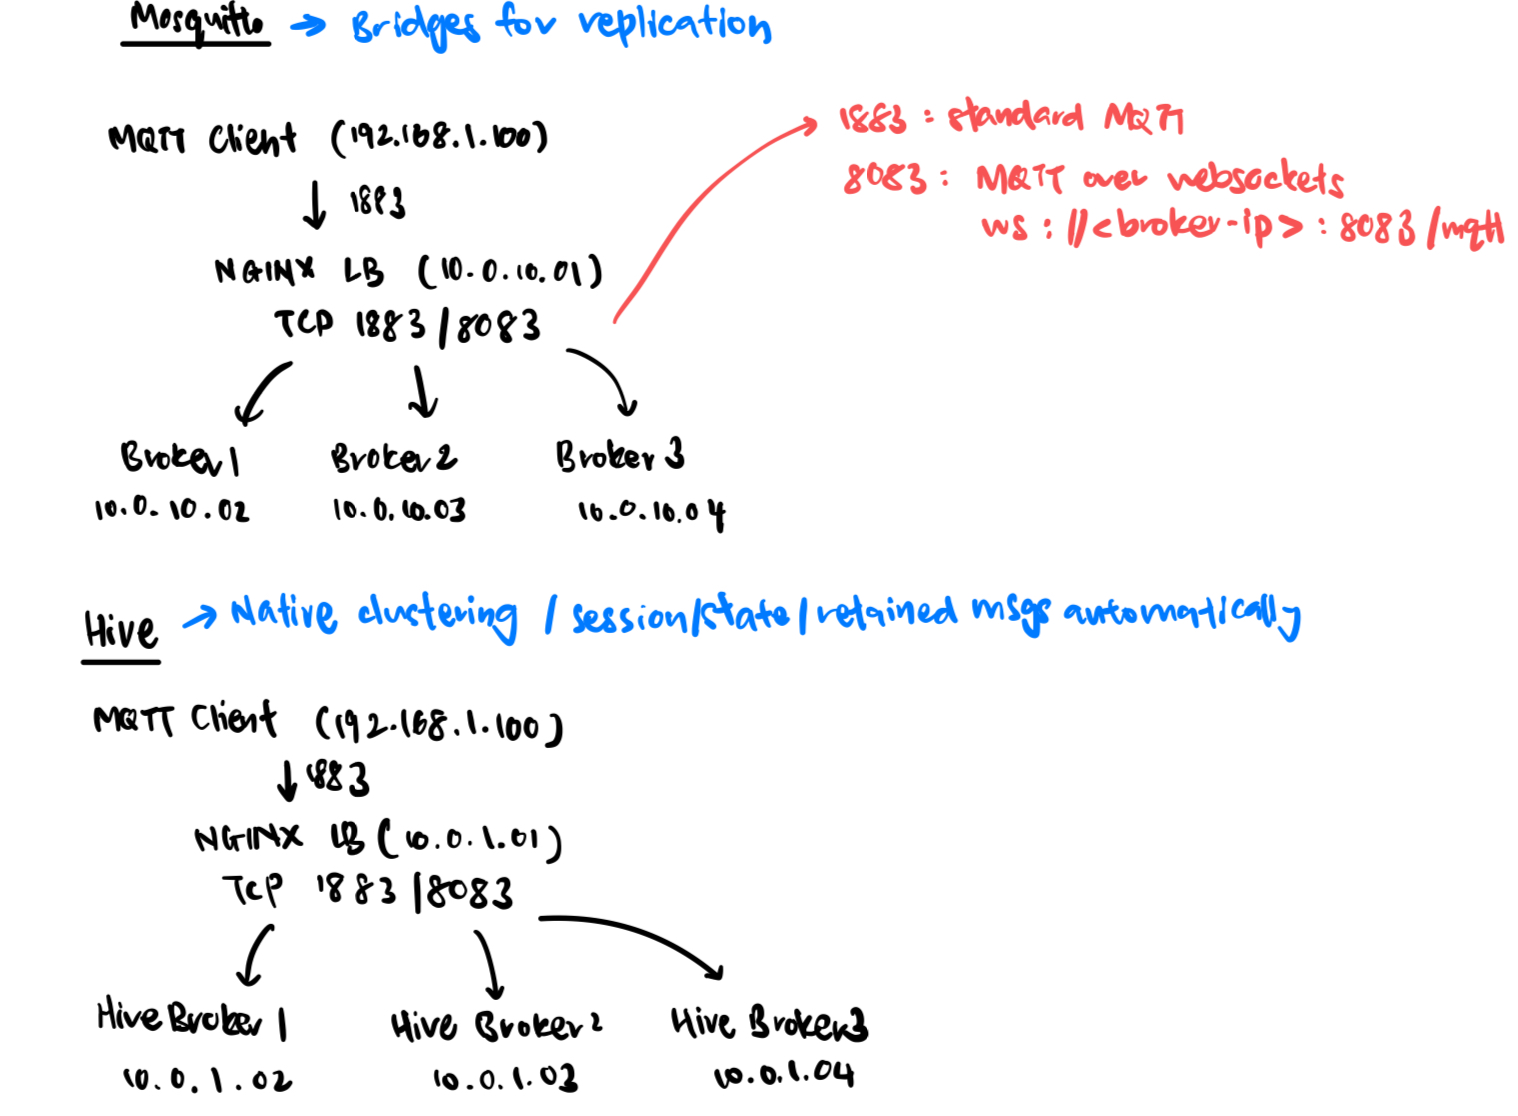 Mosquitto → Bridges for replication
MQTT Client (192.168.1.100)
↓ 1883
NGINX LB (10.0.10.01)
TCP 1883/8083
1883 : standard MQTT
8083 : MQTT over websockets
ws : //<broker-ip> : 8083 /mqtt
Broker 1 Broker 2 Broker 3
10.0.10.02 10.0.10.03 10.0.10.04
Hive → Native clustering / session/state/retained msgs automatically
MQTT Client (192.168.1.100)
↓ 1883
NGINX LB (10.0.1.01)
TCP 1883/8083
Hive Broker 1 Hive Broker 2 Hive Broker 3
10.0.1.02 10.0.1.03 10.0.1.04